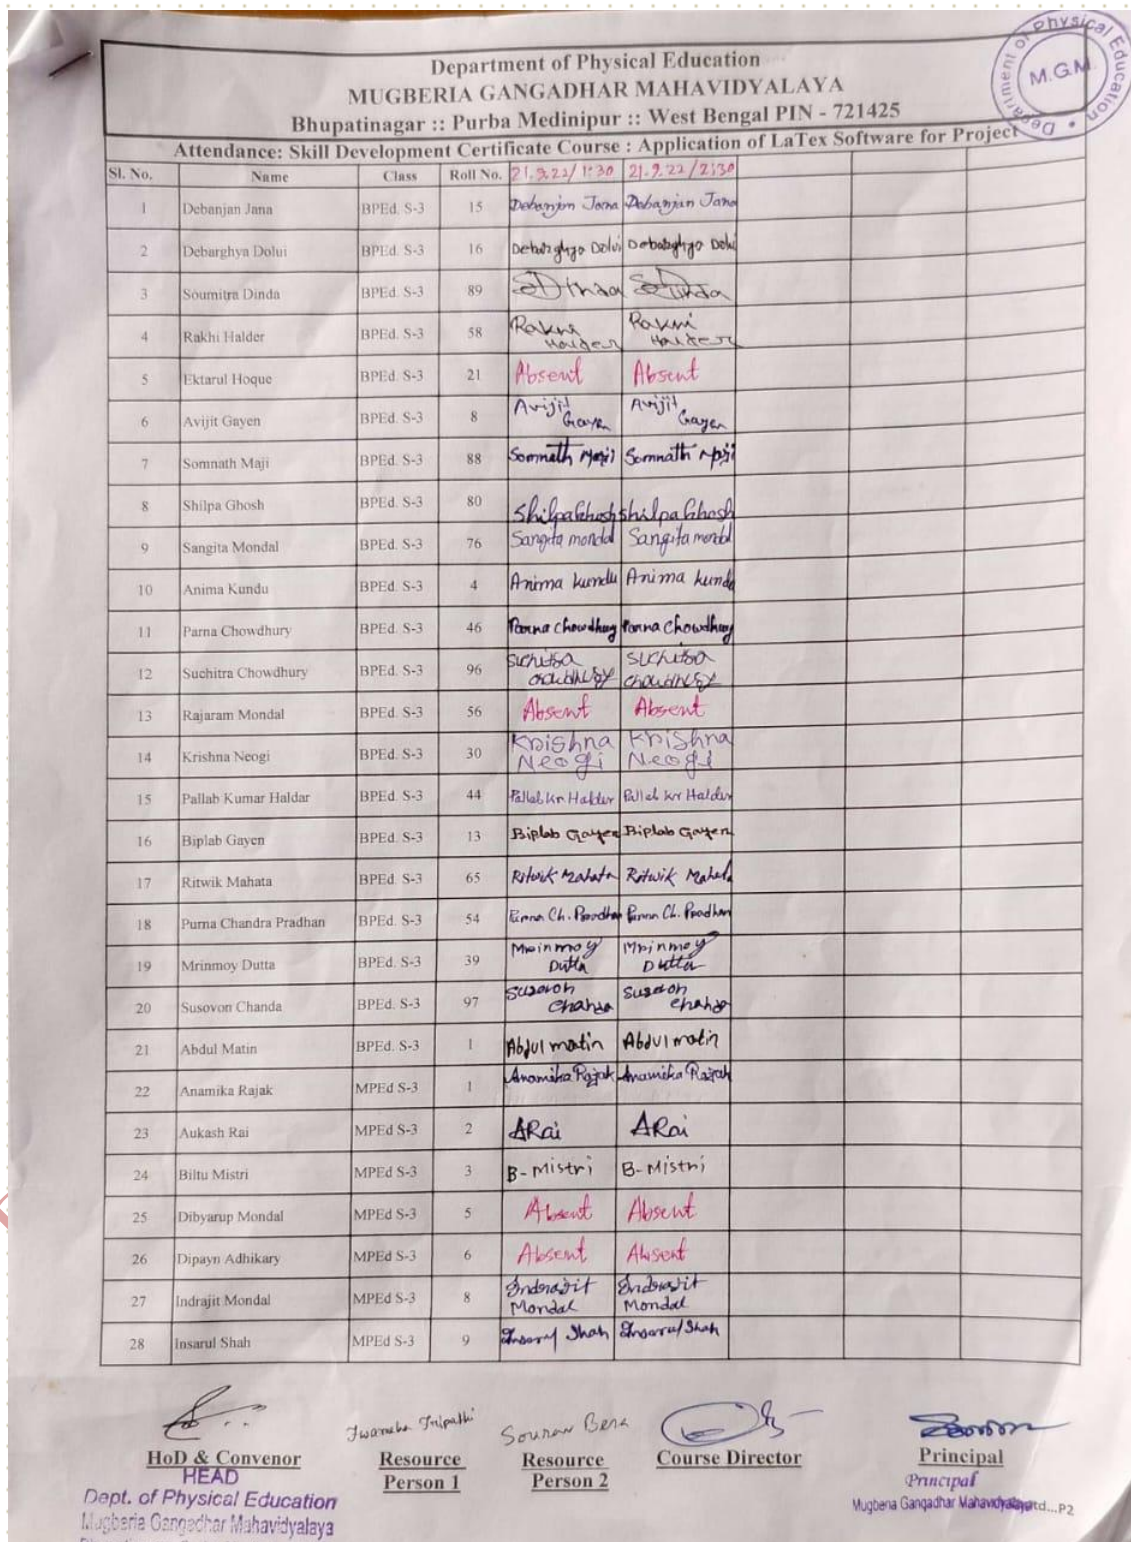 Department of Physical Education
M.G.M.
Department of Physical Education
MUGBERIA GANGADHAR MAHAVIDYALAYA
Bhupatinagar :: Purba Medinipur :: West Bengal PIN - 721425
Attendance: Skill Development Certificate Course : Application of LaTex Software for Project
Sl. No. Name Class Roll No. 21.9.22/1:30 21.9.22/2:30
1 Debanjan Jana BPEd. S-3 15 Debanjan Jana Debanjan Jana
2 Debarghya Dolui BPEd. S-3 16 Debarghya Dolui Debarghya Dolui
3 Soumitra Dinda BPEd. S-3 89 SDinda SDinda
4 Rakhi Halder BPEd. S-3 58 Rakhi Halder Rakhi Halder
5 Ektarul Hoque BPEd. S-3 21 Absent Absent
6 Avijit Gayen BPEd. S-3 8 Avijit Gayen Avijit Gayen
7 Somnath Maji BPEd. S-3 88 Somnath Maji Somnath Maji
8 Shilpa Ghosh BPEd. S-3 80 Shilpa Ghosh Shilpa Ghosh
9 Sangita Mondal BPEd. S-3 76 Sangita mondal Sangita mondal
10 Anima Kundu BPEd. S-3 4 Anima kundu Anima kundu
11 Parna Chowdhury BPEd. S-3 46 Parna Chowdhury Parna Chowdhury
12 Suchitra Chowdhury BPEd. S-3 96 Suchitra Chowdhury Suchitra Chowdhury
13 Rajaram Mondal BPEd. S-3 56 Absent Absent
14 Krishna Neogi BPEd. S-3 30 Krishna Neogi Krishna Neogi
15 Pallab Kumar Haldar BPEd. S-3 44 Pallab Kr Haldar Pallab Kr Haldar
16 Biplab Gayen BPEd. S-3 13 Biplab Gayen Biplab Gayen
17 Ritwik Mahata BPEd. S-3 65 Ritwik Mahata Ritwik Mahata
18 Purna Chandra Pradhan BPEd. S-3 54 Purna Ch. Pradhan Purna Ch. Pradhan
19 Mrinmoy Dutta BPEd. S-3 39 Mrinmoy Dutta Mrinmoy Dutta
20 Susovon Chanda BPEd. S-3 97 Susovon Chanda Susovon Chanda
21 Abdul Matin BPEd. S-3 1 Abdul matin Abdul matin
22 Anamika Rajak MPEd S-3 1 Anamika Rajak Anamika Rajak
23 Aukash Rai MPEd S-3 2 ARai ARai
24 Biltu Mistri MPEd S-3 3 B-Mistri B-Mistri
25 Dibyarup Mondal MPEd S-3 5 Absent Absent
26 Dipayn Adhikary MPEd S-3 6 Absent Absent
27 Indrajit Mondal MPEd S-3 8 Indrajit Mondal Indrajit Mondal
28 Insarul Shah MPEd S-3 9 Insarul Shah Insarul Shah
Tripathi Sourav Bera
HoD & Convenor Resource Person 1 Resource Person 2 Course Director Principal
HEAD
Dept. of Physical Education
Mugberia Gangadhar Mahavidyalaya
Principal
Mugberia Gangadhar Mahavidyalaya
td...P2